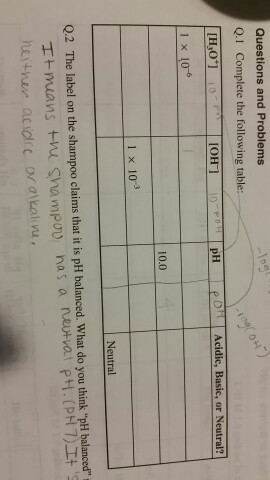 Questions and Problems
-log
-log(OH⁻)
Q.1 Complete the following table:
[H₃O⁺] 10-pH [OH⁻] 10-pOH pH pOH Acidic, Basic, or Neutral?
1 × 10⁻⁶
10.0
1 × 10⁻³
Neutral
Q.2 The label on the shampoo claims that it is pH balanced. What do you think "pH balanced"
It means the shampoo has a neutral pH. (pH 7) It's
neither acidic or alkaline.